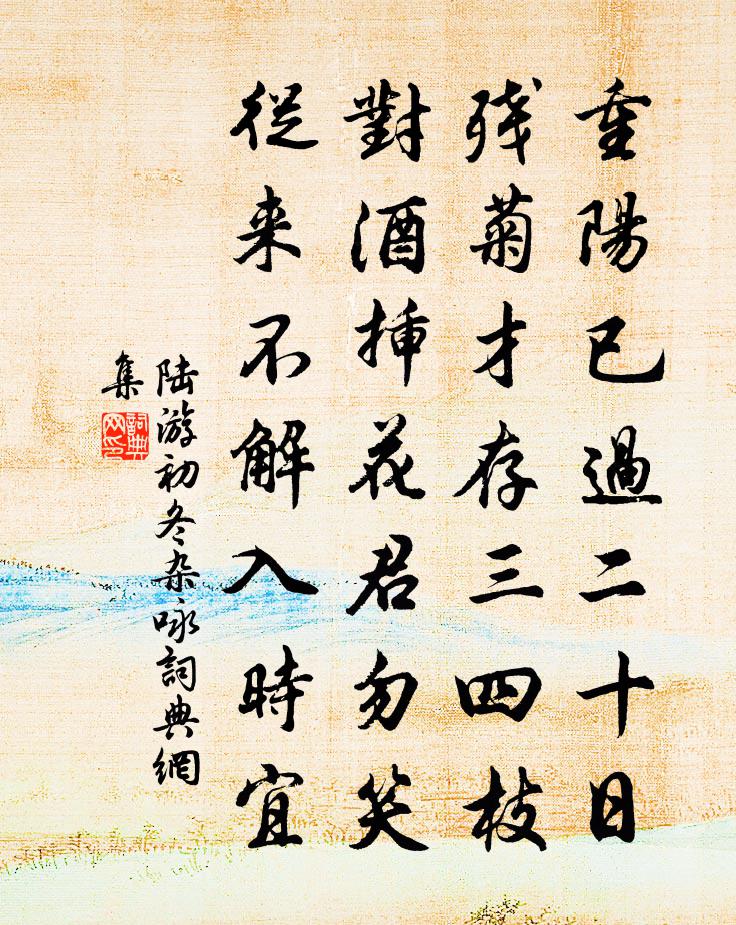 重陽已過二十日
殘菊才存三四枝
對酒挿花君勿笑
從来不解入時宜
陆游初冬杂咏詞典網
集
詞典
网印